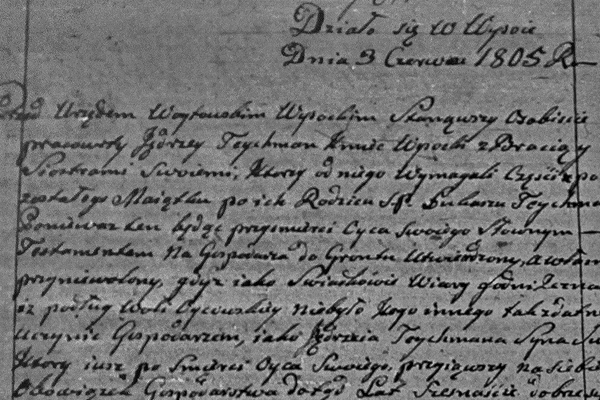 Działo się w Wysocie
Dnia 3 Czerwca 1805 R
Urzędem Woytowskim Wysockim Stanąwszy Osobiście
pracowity Jędrzey Teychman Kmieć Wysocki z Bracią y
Siostrami Swoiemi, Ktorzy od niego Wymagali Części z po
zostałego Maiątku po ich Rodzicu SP. Łukaszu Teychma
Ponieważ ten będąc przy śmierci Oyca swoiego Słownym
Testamentem Na Gospodarza do Gruntu Utwierdzony, a
przyniewolony, gdyz iako Swiadkowie Wiary Godni
iz podług Woli Oycowskiey Niebyło Kogo innego tak zdatn
Uczynic Gospodarzem, iako Jędrzeia Teychmana Syna Sw
Ktory iusz po Smierci Oyca Swoiego, przyiąwszy na siebie
Obowiązek Gospodarstwa dotąd Lat Szesnaście dobrze